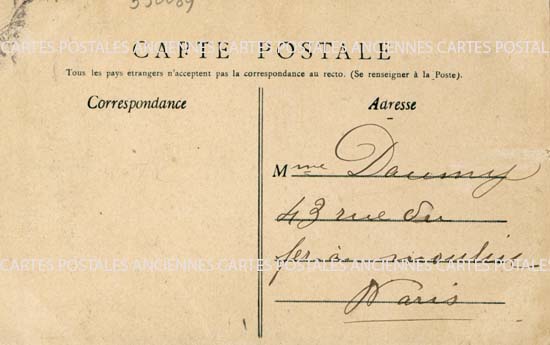 330089
CARTES POSTALES ANCIENNES CARTES POSTALES ANCIENNES CARTES POSTALES
CARTE POSTALE
Tous les pays etrangers n'acceptent pas la correspondance au recto. (Se renseigner à la Poste).
Correspondance
Adresse
Mme Daumy
43 rue du
fer à moulin
CARTES POSTALES ANCIENNES CARTES POSTALES ANCIENNES CARTES POSTALES
Paris